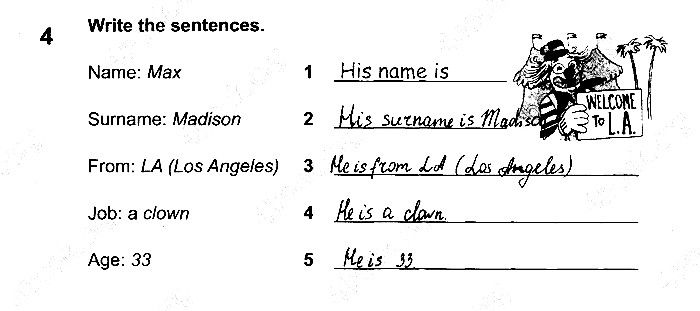 4 Write the sentences.
Name: Max 1 His name is
WELCOME
TO L.A.
Surname: Madison 2 His surname is Madison
From: LA (Los Angeles) 3 He is from LA (Los Angeles)
Job: a clown 4 He is a clown.
Age: 33 5 He is 33